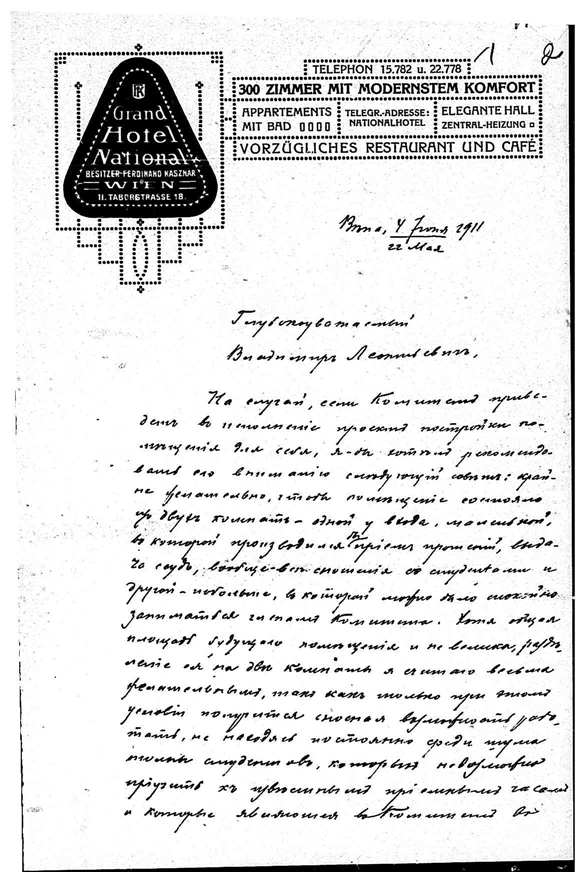 1 2
Grand
Hotel
National
BESITZER FERDINAND KASZNAR
WIEN
II. TABORSTRASSE 18.
TELEPHON 15.782 u. 22.778
300 ZIMMER MIT MODERNSTEM KOMFORT
APPARTEMENTS
MIT BAD
TELEGR.-ADRESSE:
NATIONALHOTEL
ELEGANTE HALL
ZENTRAL-HEIZUNG
VORZÜGLICHES RESTAURANT UND CAFÉ
Вѣна, 4 Iюня 1911
22 Мая
Глубокоуважаемый
Владимиръ Леонтьевичъ,
На случай, если Комитетъ приве-
детъ въ исполненіе проектъ постройки по-
мѣщенія для себя, я-бы хотѣлъ рекомендо-
вать его вниманію слѣдующій совѣтъ: край-
не желательно, чтобы помѣщеніе состояло
изъ двухъ комнатъ – одной у входа, маленькой,
въ которой производился бы пріемъ прошеній, выда-
ча ссудъ, вообще сношенія со студентами и
другой – побольше, въ которой можно было спокойно
заниматься членамъ Комитета. Хотя общая
площадь будущаго помѣщенія и не велика, раздѣ-
леніе ея на двѣ комнаты я считаю весьма
желательнымъ, такъ какъ только при этомъ
условіи получится сносная возможность рабо-
тать, не находясь постоянно среди шума
толпы студентовъ, которыхъ невозможно
пріучить къ извѣстнымъ пріемнымъ часамъ
и которые являются въ Комитетъ во